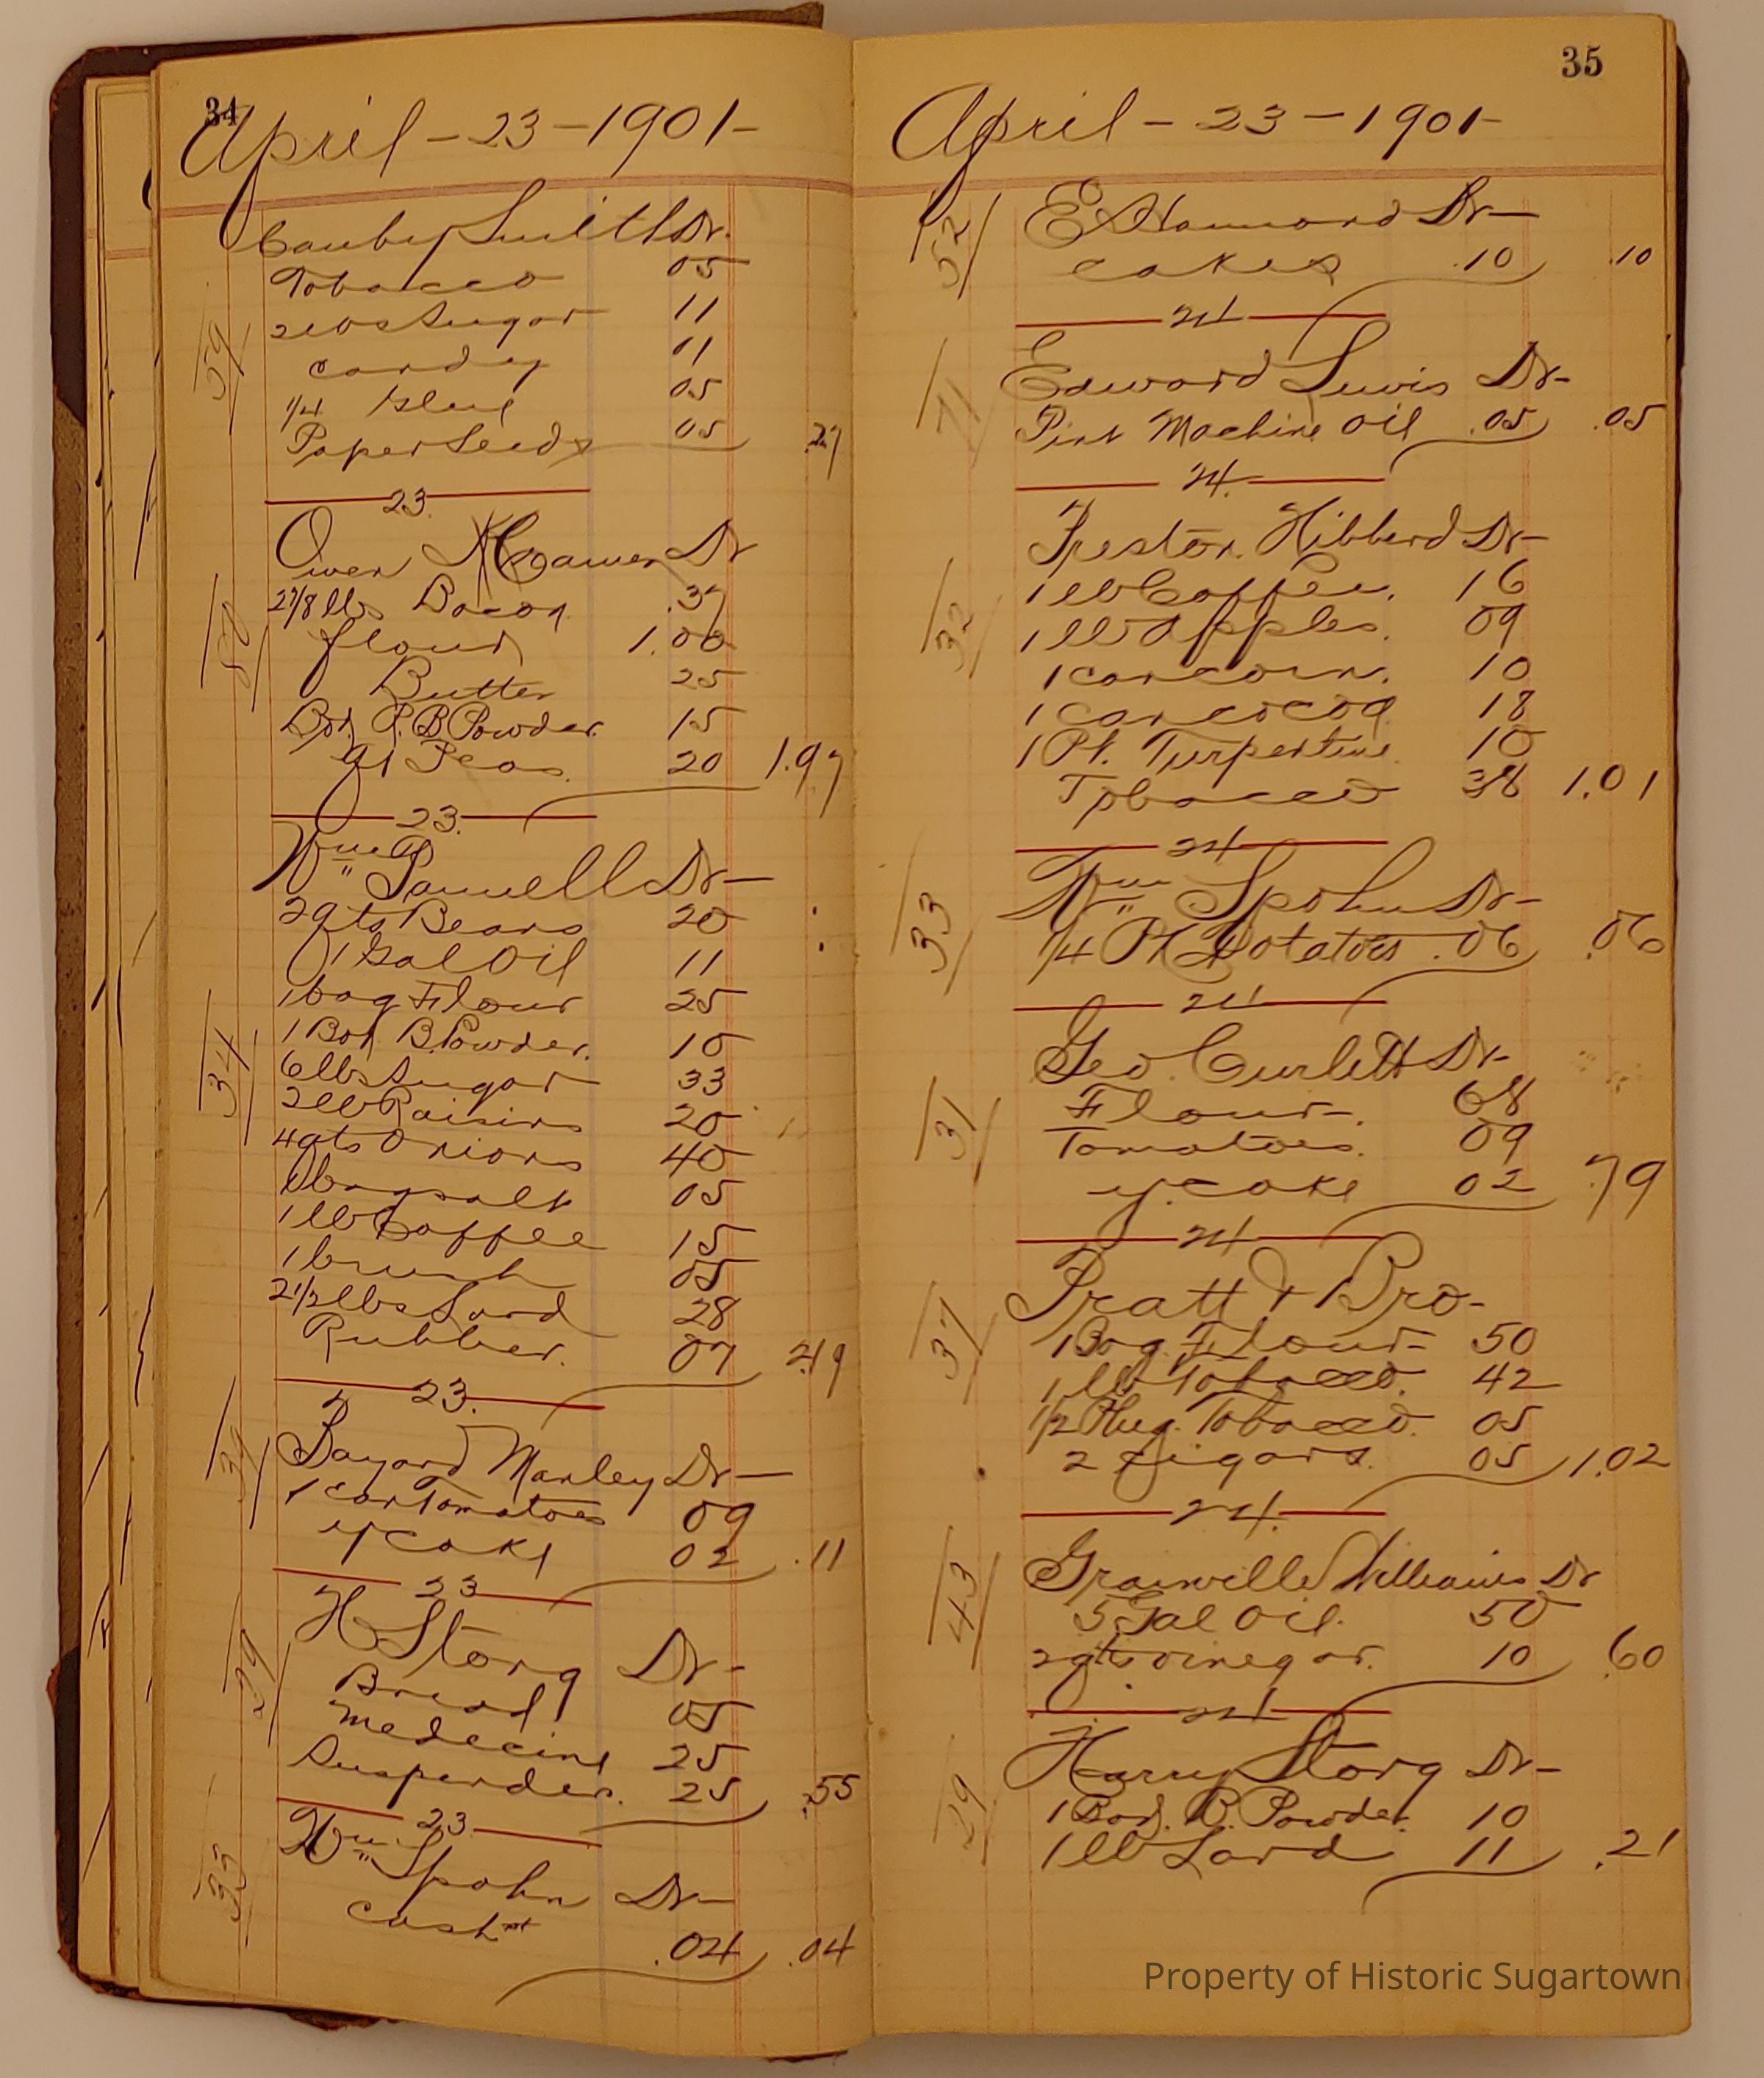 34
April - 23 - 1901 -
Smith Dr.
Tobacco 05
2 lbs Sugar 11
candy 01
1/4 05
Paper Seeds 05 .27
59
23.
Owen Dr
2 7/8 lbs Bacon .37
flour 1.00
Butter 25
Box P. B Powder 15
qt Peas. 20 1.97
50
23.
Wm Dr -
2 qts Beans 20
1 Gal Oil 11
1 bag Flour 25
1 Box B. Powder. 10
6 lbs Sugar 33
2 lb Raisins 20
4 qts Onions 40
1 bag salt 05
1 lb Coffee 15
1 brush 05
2 1/2 lbs Lard 28
Rubber. 07 2.19
34
23.
Bayard Manley Dr -
1 can Tomatoes 09
y cake 02 .11
39
23
H Storg Dr -
Bread 05
medecine 25
Suspender. 25 .55
29
23
Wm Spohn Dr -
cash .04 .04
33
35
April - 23 - 1901 -
E Hammond Dr -
cakes .10 .10
52
24
Edward Lewis Dr -
Pint Machine Oil .05 .05
71
24.
Preston. Hibberd Dr -
1 lb Coffee. 16
1 lb Apples. 09
1 can corn. 10
1 can cocoa 18
1 Pt. Turpentine 10
Tobacco 38 1.01
32
24
Wm Spohn Dr -
1/4 Pk Potatoes .06 .06
33
24
Geo. Curlett Dr -
Flour -. 68
Tomatoes. 09
y. cake 02 .79
31
24
Pratt & Bro -
1 Bag. Flour - 50
1 lb Tobacco. 42
1/2 Plug. Tobacco. 05
2 Cigars. 05 1.02
37
24.
Granville Williams Dr
5 Gal Oil. 50
2 qts vinegar. 10 .60
43
24
Harry Storg Dr -
1 Box. B. Powder. 10
1 lb Lard 11 .21
29
Property of Historic Sugartown